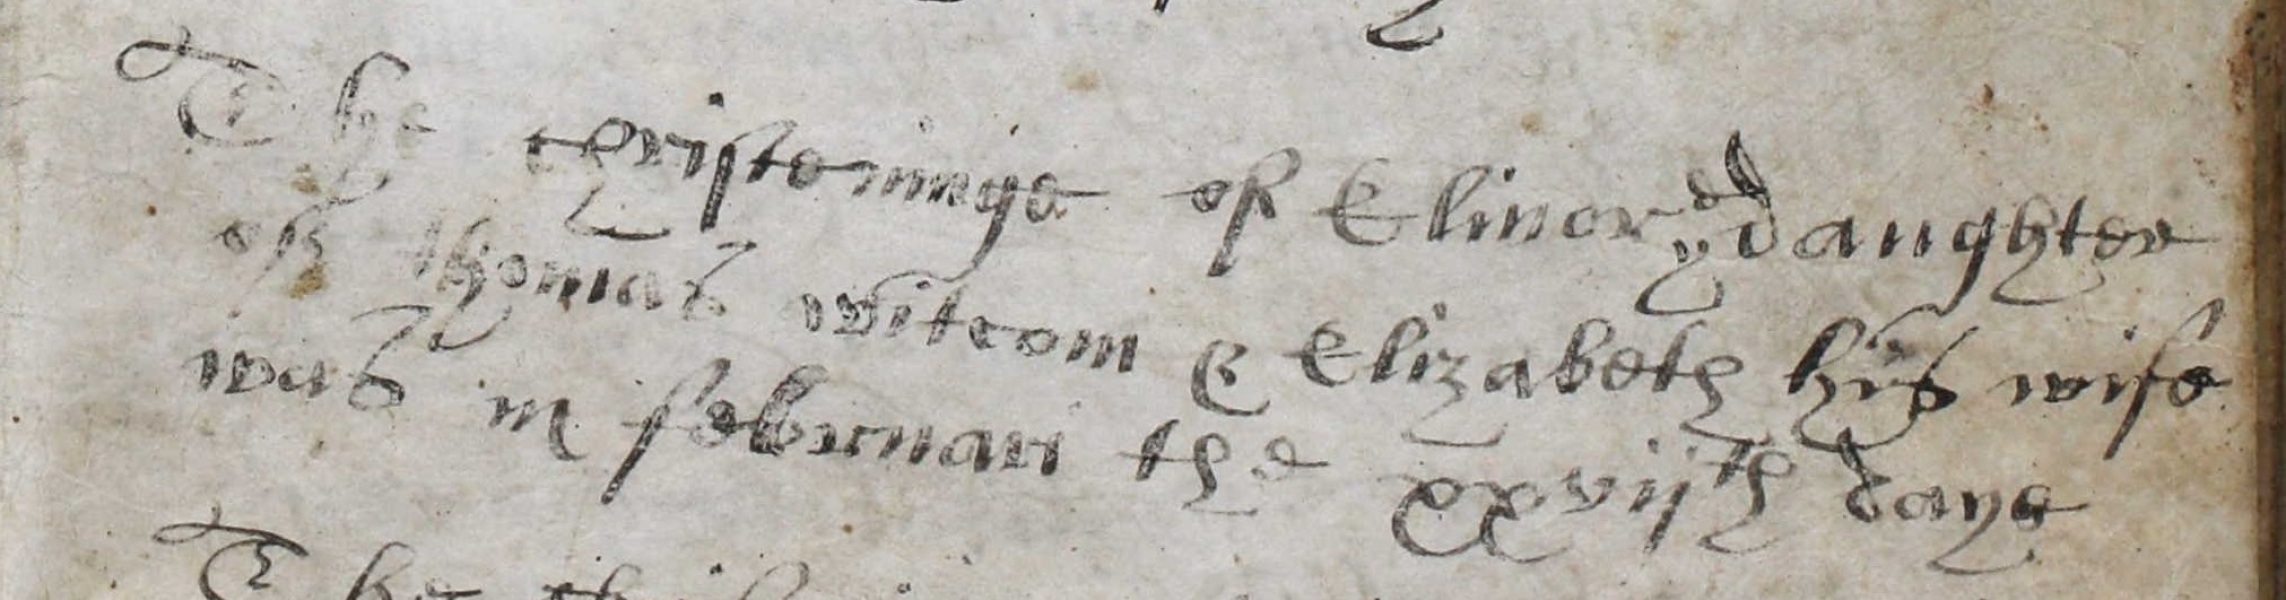 The christeninge of Elinor ye daughter
of thomas witcom & Elizabeth his wife
was in februari the xxvijth daye
The